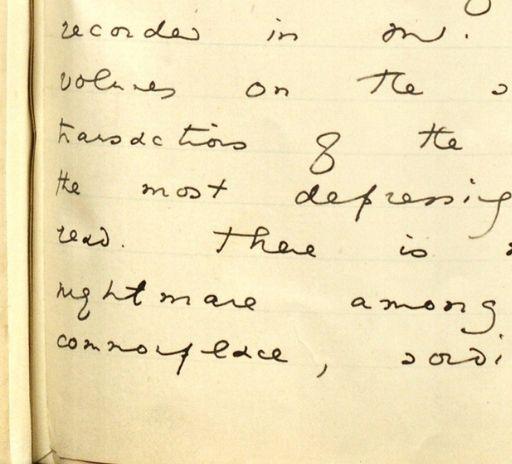 recorded in M.
volumes on the s
transactions of the
the most depressing
read. There is
nightmare among
commonplace, sordi